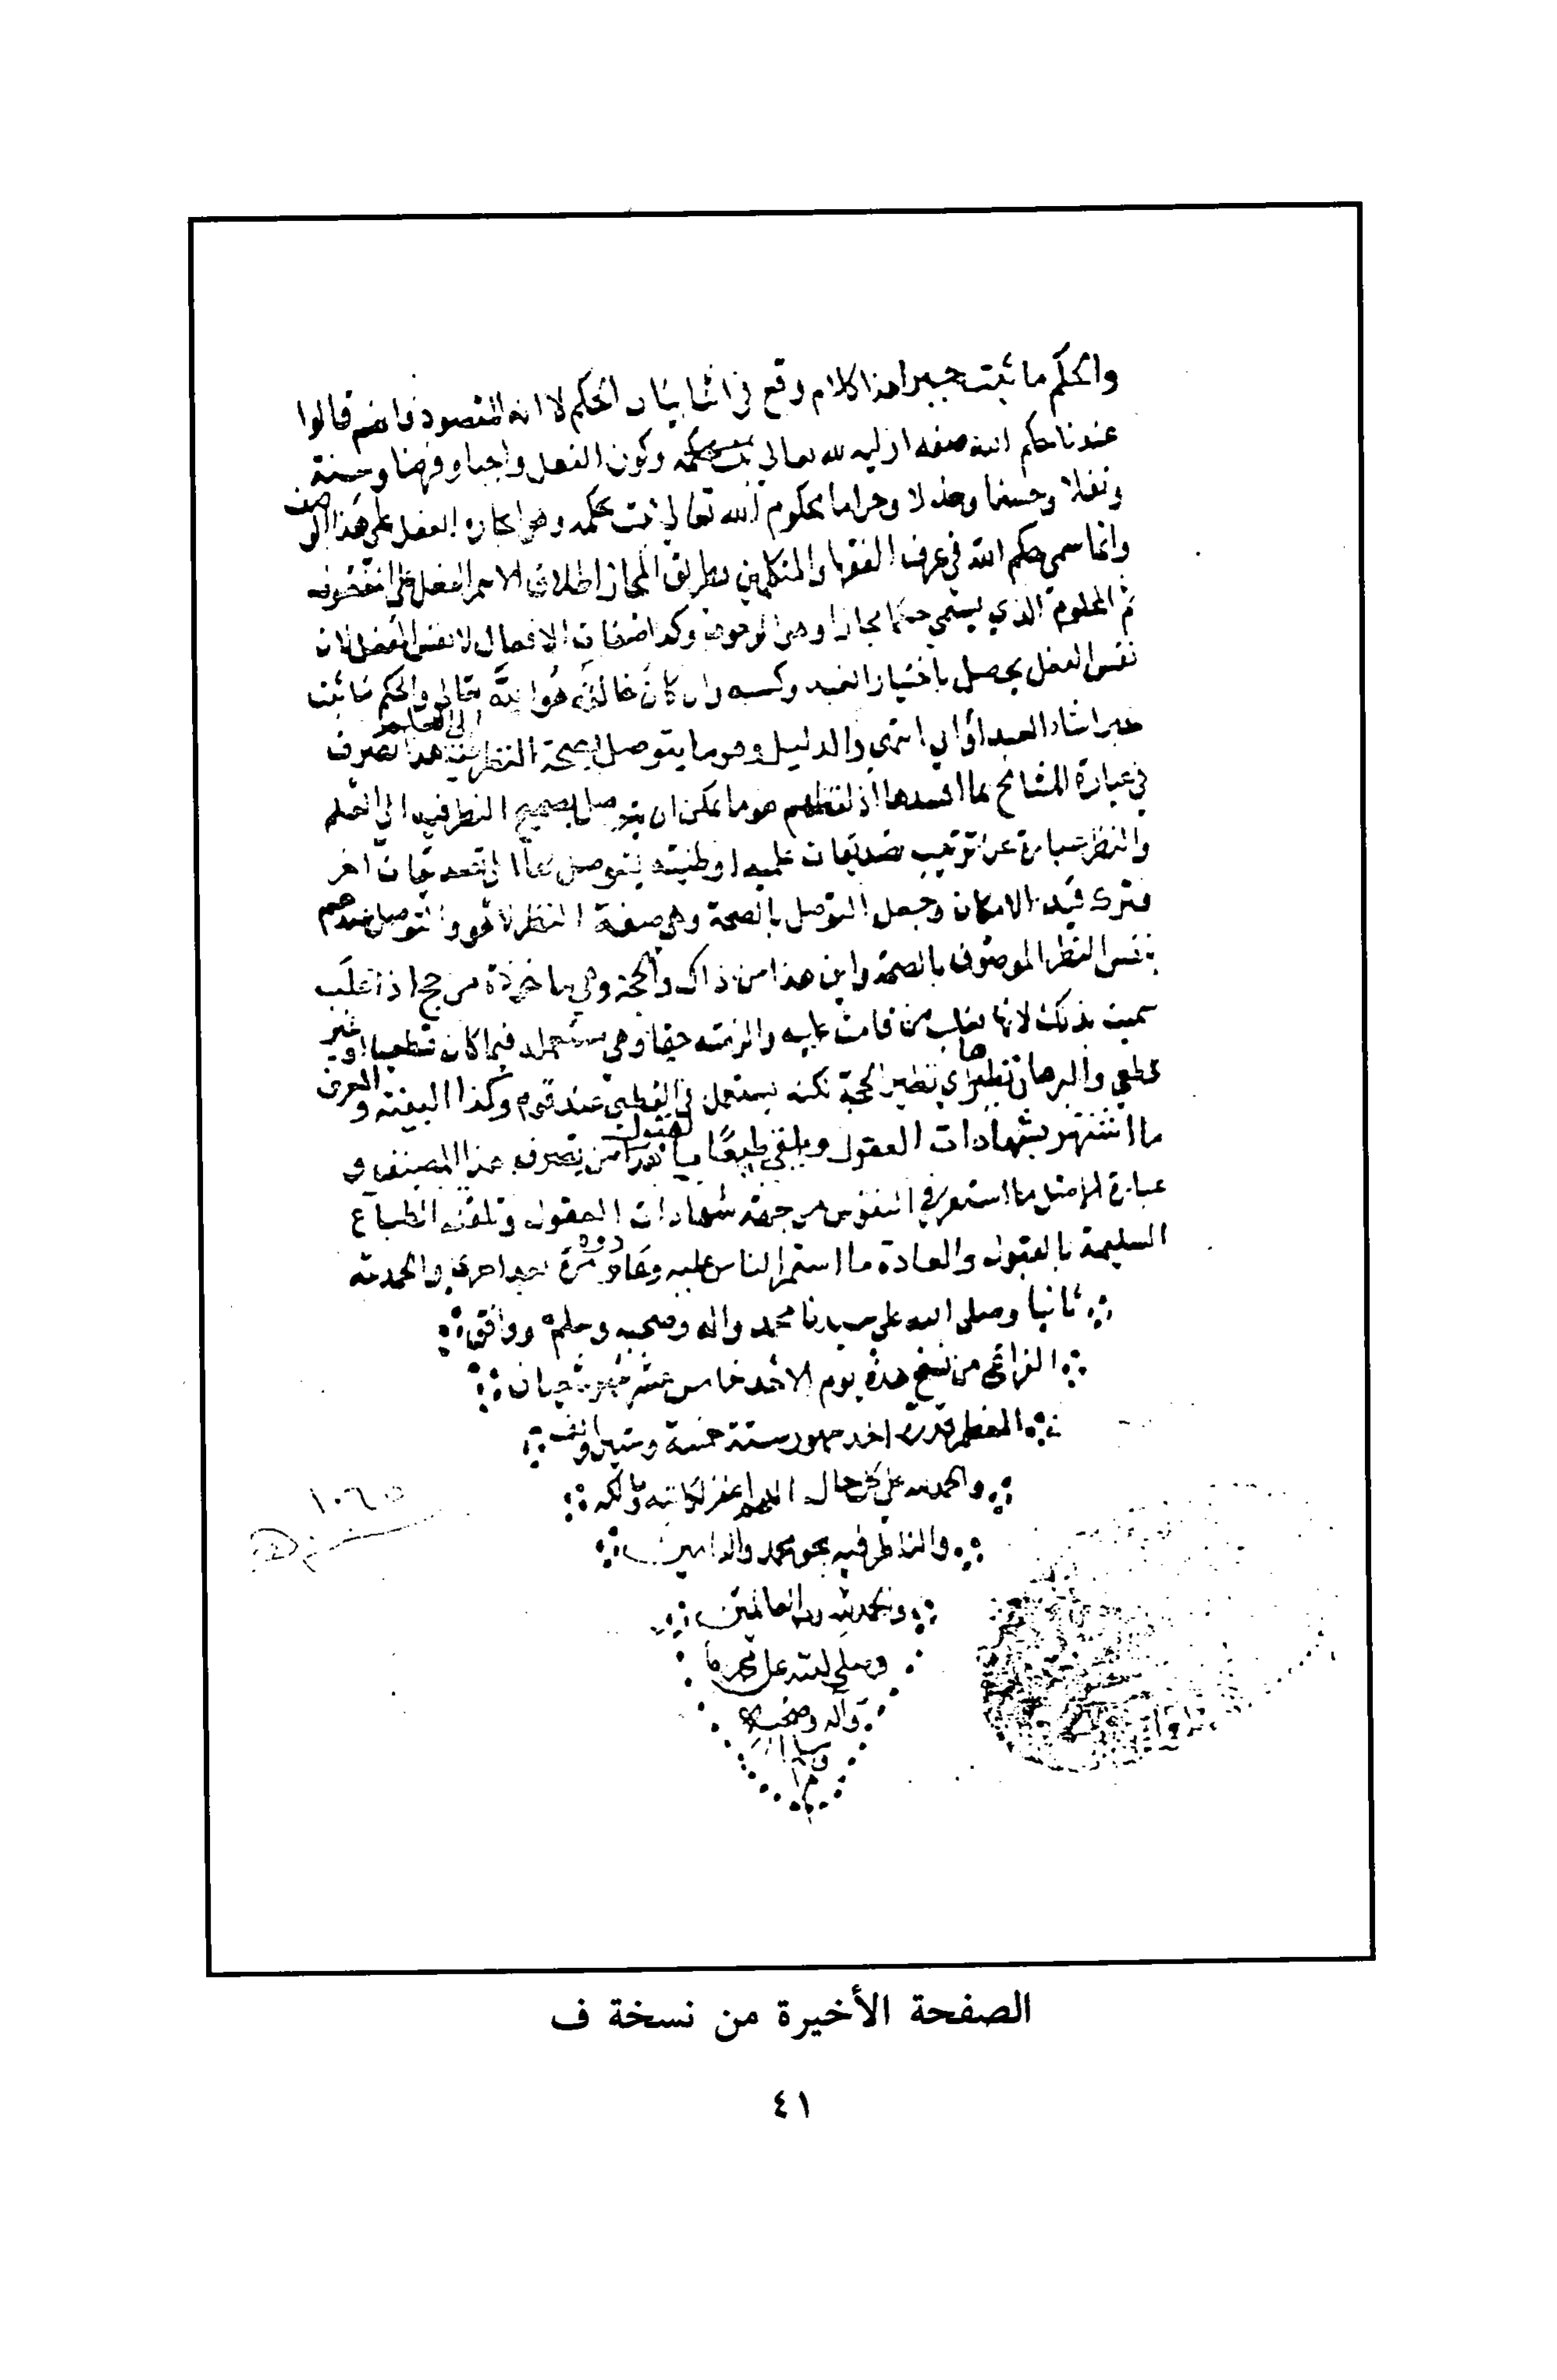 والحكم ما ثبت جبرا هذا كلام وقع في اثنا بيان الحكم لا انه المقصود فانهم قالوا
عندنا حكم الله صفة ازلية لله تعالى وكون الفعل واجبا وفرضا وسنة
ونفلا وحسنا وحلالا وحراما محكوم الله تعالى ثبت بحكمه وهو ايجاده الفعل على هذا الوصف
وانما سمي حكم الله في عرف الفقها والمتكلمين بطريق المجاز اطلاق الاسم الفعل على المفعول
ثم المحكوم الذي يسمى حكما مجازا وهو الوجوب وكذا صفات الافعال لا نفس الفعل لان
نفس الفعل يحصل باختيار العبد وكسبه وان كان خالقه هو الله تعالى والحكم ما ثبت
جبرا شاء العبد او ابى انتهى والدليل وهو ما يتوصل بصحة النظر فيه الى العلم هذا تصرف
في عبارة المشائخ بما افسدها اذ لفظهم هو ما يمكن ان يتوصل بصحيح النظر فيه الى العلم
والنظر عبارة عن ترتيب تصديقات علمية او ظنية يتوصل بها الى تصديقات اخر
فترك قيد الامكان وجعل التوصل بالصحة وهي صفة النظر والتوصل عندهم
بنفس النظر الموصوف بالصحة واين هذا من ذاك والحجة وهي ماخوذة من حج اذا غلب
سميت بذلك لانها تغلب من قامت عليه والزمته حقا وهي مستعملة فيما كان قطعيا او غير
قطعي والبرهان نظيرها اي نظير الحجة لكنه يستعمل في القطعي عند قوم وكذا البينة والعرف
ما اشتهر بشهادات العقول وتلقي طبعا بالقبول هذا من تصرف هذا المصنف و
عبارة الاصل ما استقر في النفوس من جهة شهادات العقول وتلقته الطباع
السليمة بالقبول والعادة ما استمر الناس عليه وعاودوه مرة بعد اخرى والحمد لله
ثانيا وصلى الله على سيدنا محمد واله وصحبه وسلم ووافق
الفراغ من نسخ هذه يوم الاحد خامس عشر شهر شعبان
المعظم قدره احد شهور سنة خمسة وستين والف
والحمد لله على كل حال اللهم اغفر لكاتبه ومالكه
والناظر فيه بحق محمد واله امين
والحمد لله رب العالمين
وصلى الله على محمد
وآله وصحبه
وسلم
م
١٠٦٥
الصفحة الأخيرة من نسخة ف
٤١